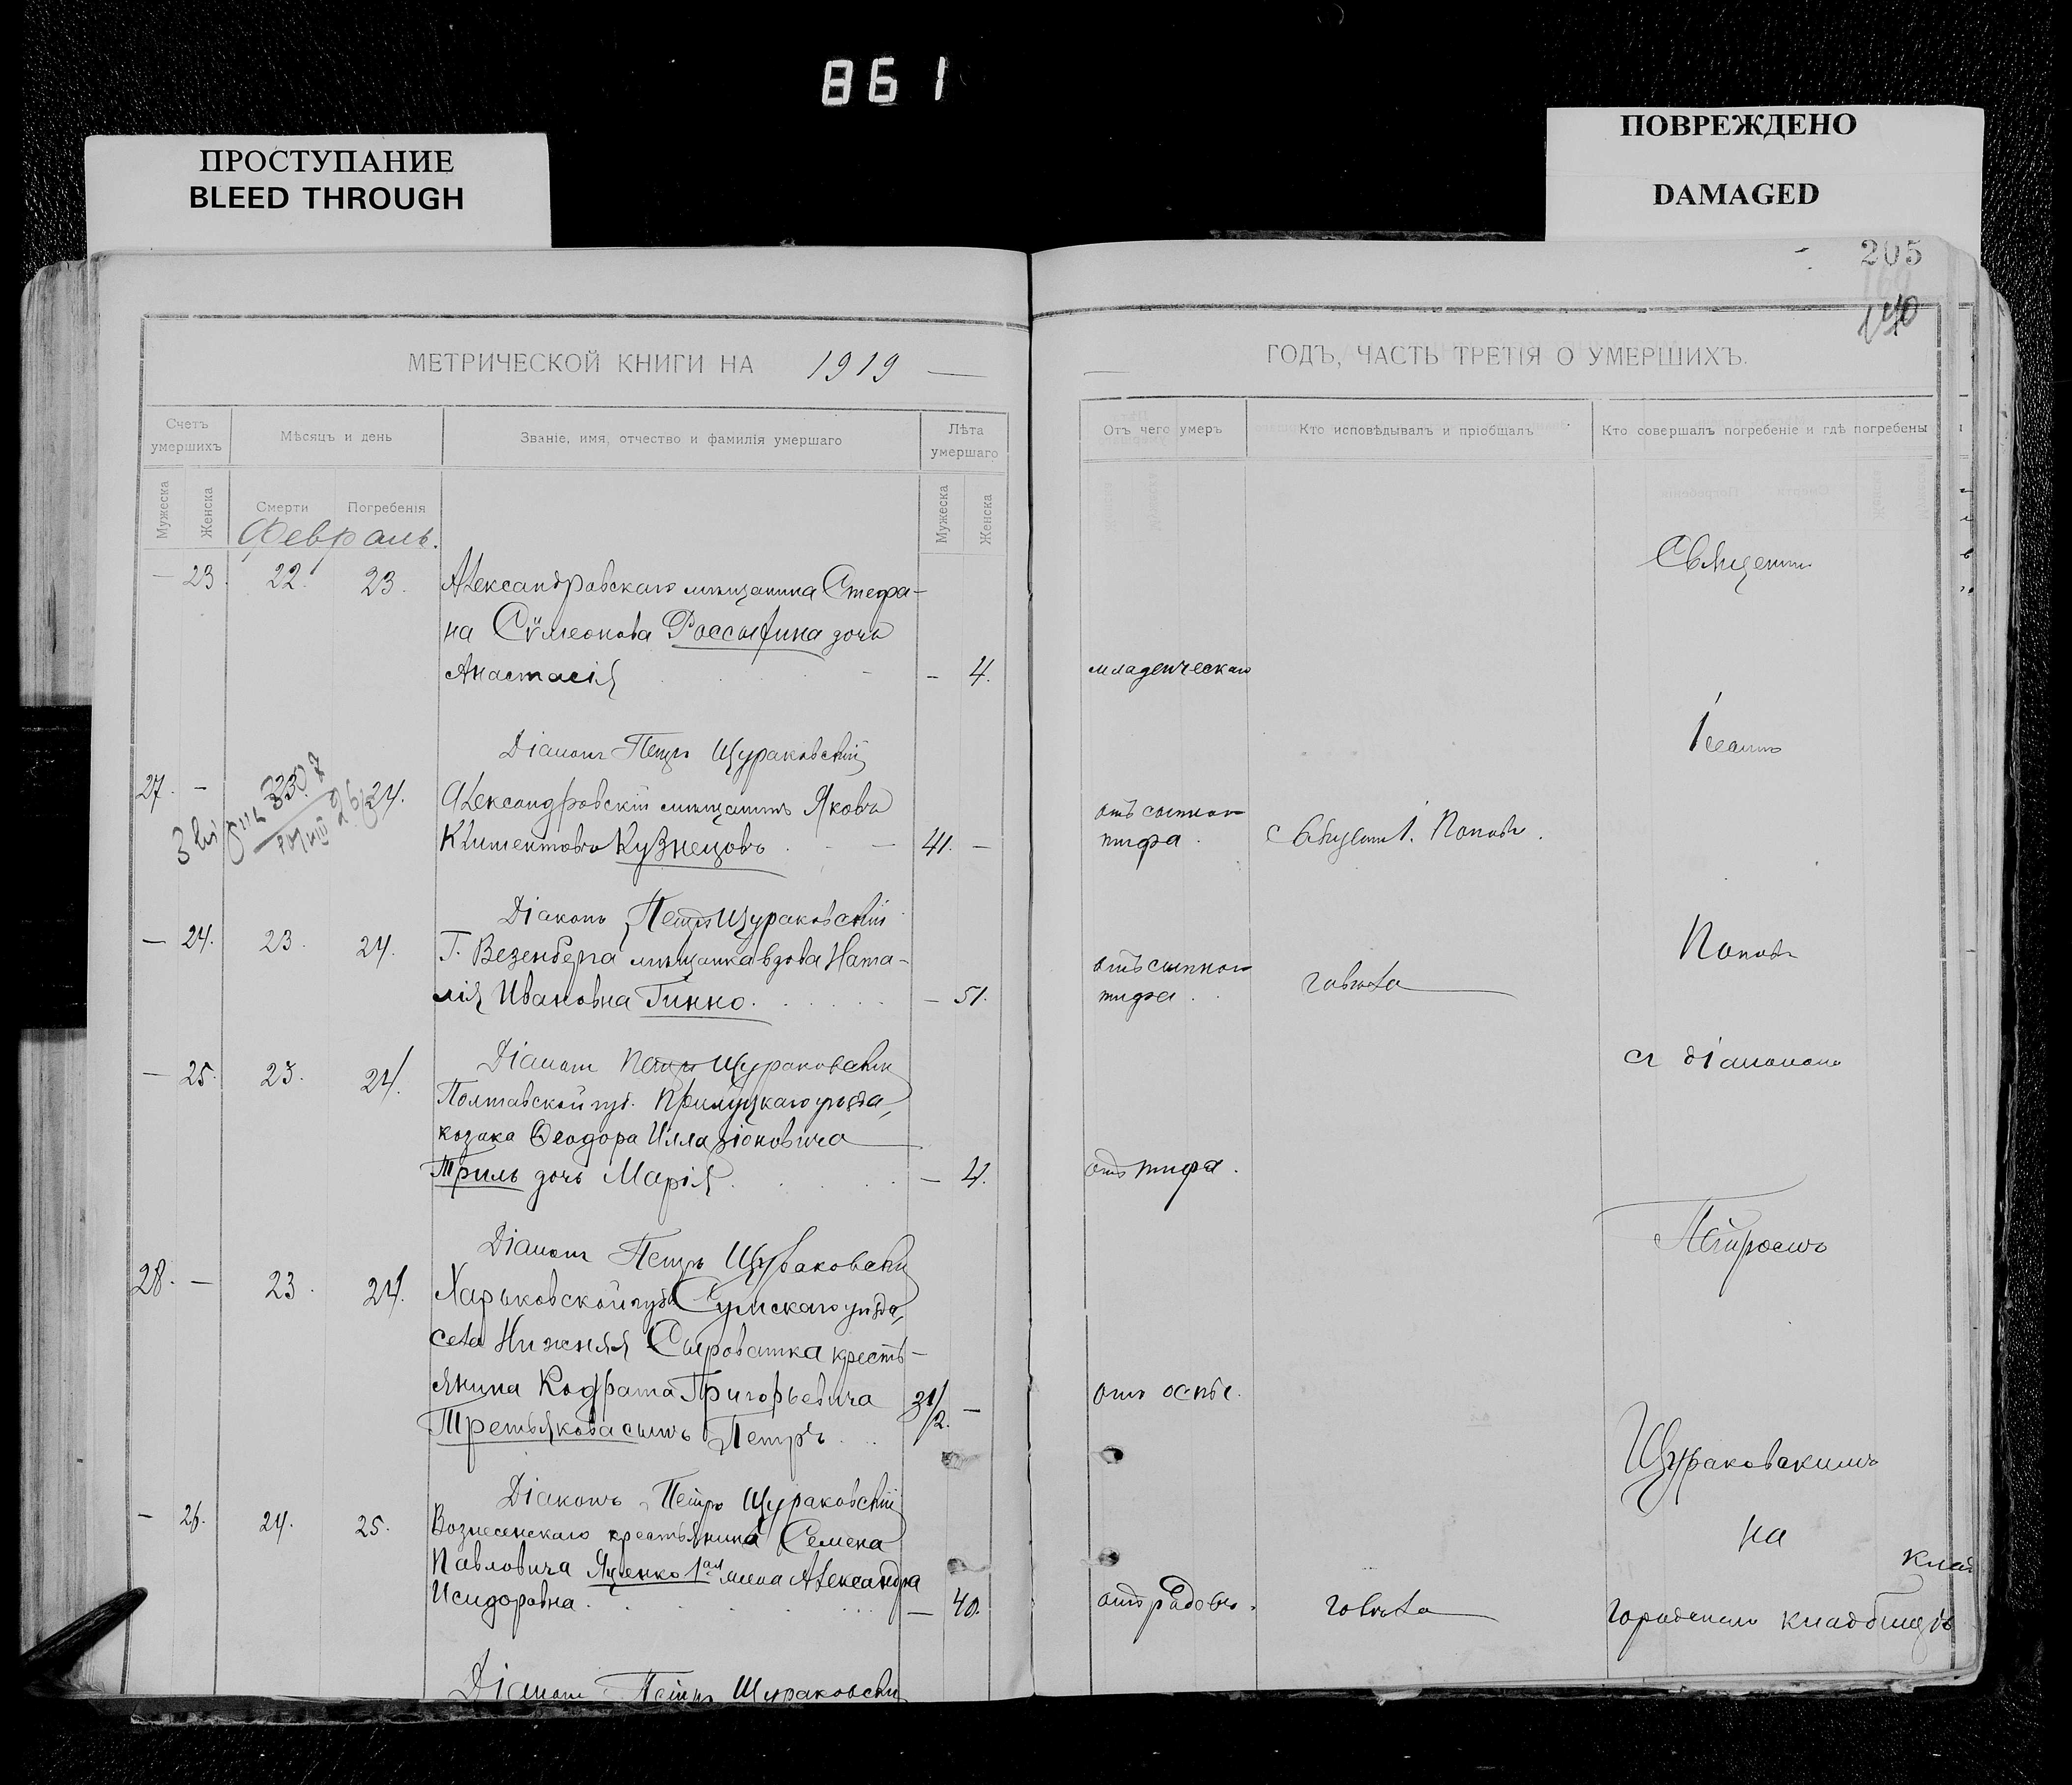 861
ПРОСТУПАНИЕ
BLEED THROUGH
ПОВРЕЖДЕНО
DAMAGED
205
МЕТРИЧЕСКОЙ КНИГИ НА 1919
Счетъ умершихъ
Мѣсяцъ и день
Званіе, имя, отчество и фамилія умершаго
Лѣта умершаго
Мужеска
Женска
Смерти
Погребенія
Мужеска
Женска
Февраль.
— 23. 22. 23. Александровскаго мѣщанина Стефа-
на Сѵмеонова дочь
Анастасія — 4.
Діаконъ Петръ Щураковскій
27. — 24. Александровскій мѣщанинъ Яковъ
Климентовъ Кузнецовъ 41. —
Діаконъ Петръ Щураковскій
— 24. 23. 24. Г. Везенберга мѣщанка вдова Ната-
лія Ивановна Гинно. — 51.
Діаконъ Петръ Щураковскій
— 25. 23. 24. Полтавской губ. Прилуцкаго уѣзда,
козака Ѳеодора Илларіоновича
Триль дочь Марія. — 4.
Діаконъ Петръ Щураковскій
28. — 23. 24. Харьковской губ. Сумскаго уѣзда,
села Нижняя Сыроватка кресть-
янина Кодрата Григорьевича
Третьякова сынъ Петръ
Діаконъ Петръ Щураковскій
— 26. 24. 25. Вознесенскаго крестьянина Семена
Павловича Яценко 1ая жена Александра
Исидоровна. — 40.
Діаконъ Петръ Щураковскій
ГОДЪ, ЧАСТЬ ТРЕТІЯ О УМЕРШИХЪ.
Отъ чего умеръ
Кто исповѣдывалъ и пріобщалъ
Кто совершалъ погребеніе и гдѣ погребены
Священникъ
младенческаго
Іоаннъ
отъ сыпного
тифа. Священ. І. Поповъ.
Поповъ
отъ сыпного
тифа.
съ діакономъ
отъ тифа.
Петромъ
отъ оспы.
Щураковскимъ
на
отъ родовъ.
городскомъ кладбищѣ